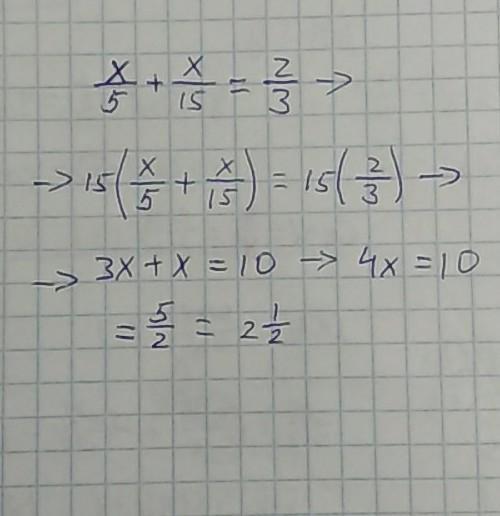 x/5 + x/15 = 2/3 →
→ 15(x/5 + x/15) = 15(2/3) →
→ 3x + x = 10 → 4x = 10
= 5/2 = 2 1/2